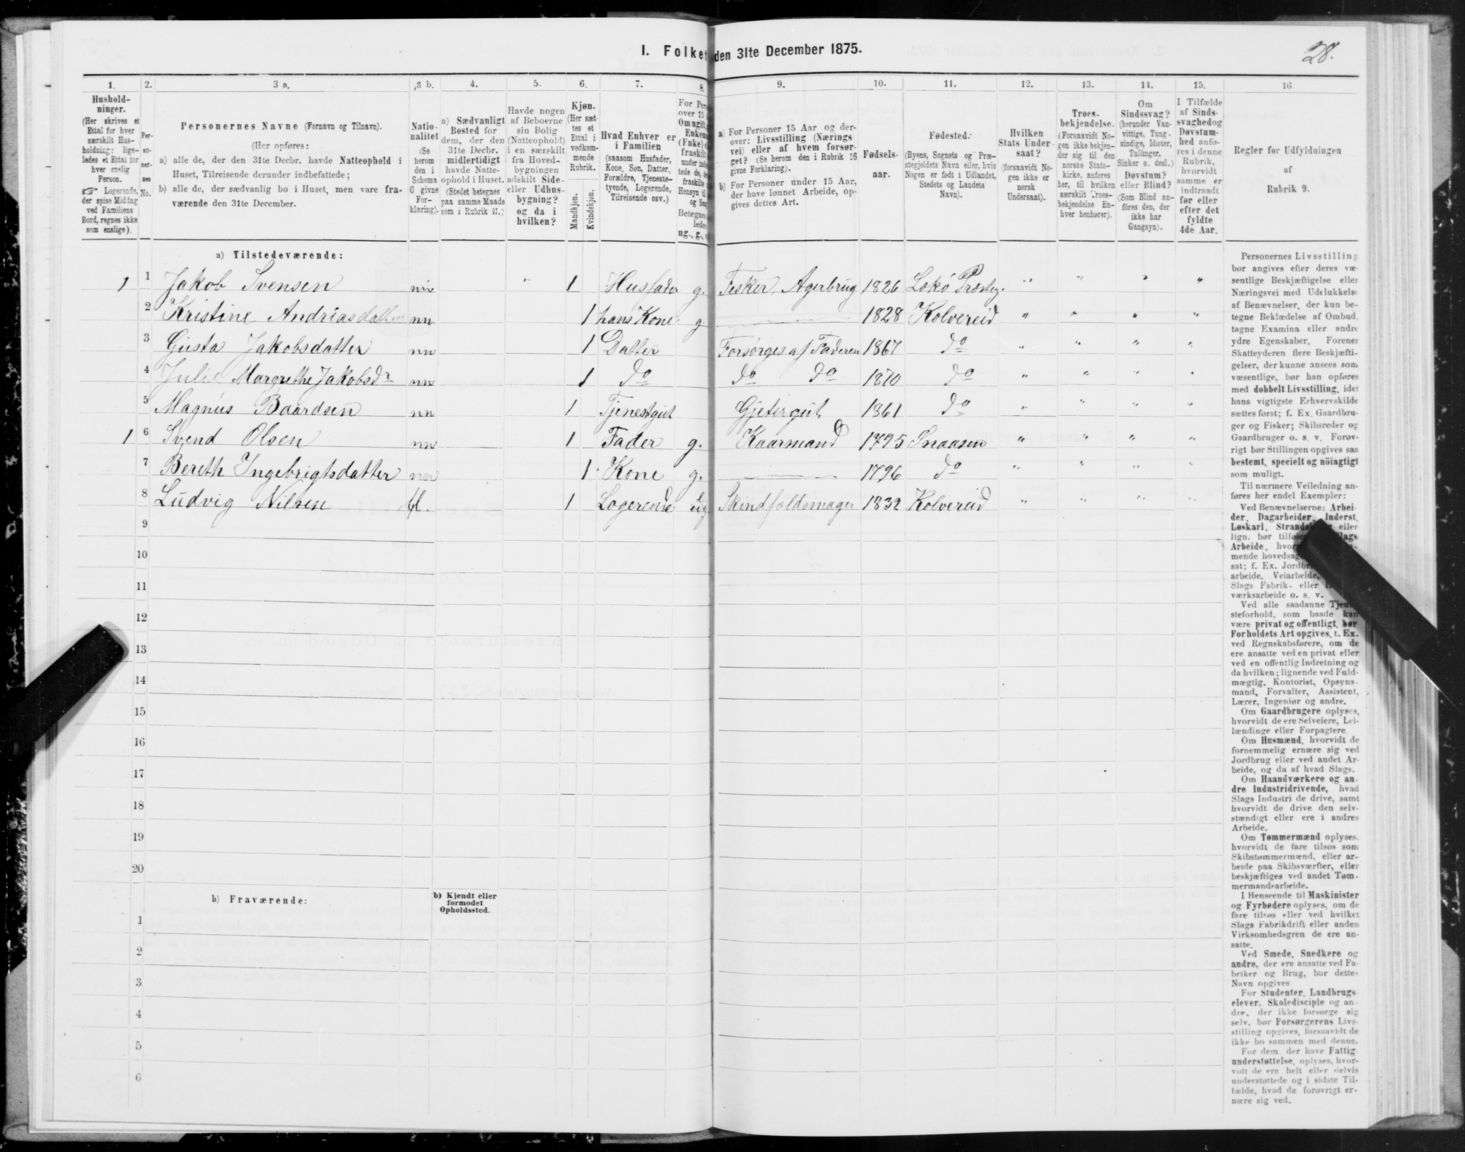 I. Folket den 31te December 1875.
28.
1. 2. 3 a. 3 b. 4. 5. 6. 7. 8. 9. 10. 11. 12. 13. 14. 15. 16.
Hushold-
ninger.
(Her skrives et
Ettal for hver
særskilt Hus-
holdning; lige-
ledes et Ettal for
hver enslig
Person.
☞ Logerende,
der spise Middag
ved Familiens
Bord, regnes ikke
som enslige).
Per-
soner-
nes
No.
Personernes Navne (Fornavn og Tilnavn).
(Her opføres:
a) alle de, der den 31te Decbr. havde Natteophold i
Huset, Tilreisende derunder indbefattede;
b) alle de, der sædvanlig bo i Huset, men vare fra-
værende den 31te December.
Natio-
nalitet
(Se
herom
den i
Schema
G givne
For-
klaring).
a) Sædvanligt
Bosted for
dem, der den
31te Decbr.
midlertidigt
havde Natte-
ophold i Huset.
(Stedet betegnes
paa samme Maade
som i Rubrik 11.)
Havde nogen
af Beboerne
sin Bolig
(Natteophold)
i en særskilt
fra Hoved-
bygningen
adskilt Side-
eller Udhus-
bygning?
og da i
hvilken?
Kjøn.
(Her sæt-
tes et
Ettal i
vedkom-
mende
Rubrik.
Mandkjøn.
Kvindekjøn.
Hvad Enhver er
i Familien
(saasom Husfader,
Kone, Søn, Datter,
Forældre, Tjeneste-
tyende, Logerende,
Tilreisende osv.)
a) For Personer 15 Aar og der-
over: Livsstilling (Nærings
vei) eller af hvem forsør-
get? (Se herom den i Rubrik 16
givne Forklaring).
b) For Personer under 15 Aar,
der have lønnet Arbeide, op-
gives dettes Art.
Fødsels-
aar.
Fødested.
(Byens, Sognets og Præ-
stegjeldets Navn eller, hvis
Nogen er født i Udlandet,
Stedets og Landets
Navn).
Hvilken
Stats Under-
saat?
(forsaavidt No-
gen ikke er
norsk
Undersaat).
Troes-
bekjendelse.
(Forsaavidt No-
gen ikke bekjen-
der sig til den
norske Stats-
kirke, anføres
her, til hvilken
særskilt Troes-
bekjendelse En-
hver henhører).
Om
Sindssvag?
(herunder Van-
vittige, Tung-
sindige, Idioter,
Tullinger,
Sinker o. desl.)
Døvstum?
eller Blind?
(Som Blind an-
føres den, der
ikke har
Gangsyn).
I Tilfælde
af Sinds-
svaghed og
Døvstum-
hed anfø-
res i denne
Rubrik,
hvorvidt
samme er
indtraadt
før eller
efter det
fyldte
4de Aar.
Regler for Udfyldningen
af
Rubrik 9.
a) Tilstedeværende:
1 1 Jakob Svensen nn " 1 Husfader g. Fisker. Agerbrug 1826 Lekø Præstg. " " " "
2 Kristine Andriasdatter nn 1 hans Kone g 1828 Kolvereid " " " "
3 Gusta Jakobsdatter nn 1 Datter Forsørges af Faderen 1867 do " " " "
4 Margrethe Jakobsdr nn 1 do do do 1870 do " " " "
5 Magnus Baardsen nn 1 Tjenestgut Gjetergut 1861 do " " " "
1 6 Svend Olsen nn 1 Fader g. Kaarmand 1795 Snaasen " " " "
7 Bereth Ingebrigtsdatter nn 1 Kone g. 1796 do " " " "
8 Ludvig Nilsen bl. 1 Logerende ug Skindfeldsmager 1832 Kolvereid " " " "
9
10
11
12
13
14
15
16
17
18
19
20
b) Fraværende:
b) Kjendt eller
formodet
Opholdssted.
1
2
3
4
5
6
Personernes Livsstilling
bør angives efter deres væ-
sentlige Beskjæftigelse eller
Næringsvei med Udelukkelse
af Benævnelser, der kun be-
tegne Beklædelse af Ombud,
tagne Examina eller andre
ydre Egenskaber. Forener
Skatteyderen flere Beskjæfti-
gelser, der kunne ansees som
væsentlige, bør han opføres
med dobbelt Livsstilling, idet
hans vigtigste Erhvervskilde
sættes først; f. Ex. Gaardbru-
ger og Fisker; Skibsreder og
Gaardbruger o. s. v. Forøv-
rigt bør Stillingen opgives saa
bestemt, specielt og nøiagtigt
som muligt.
Til nærmere Veiledning an-
føres her endel Exempler:
Ved Benævnelserne: Arbei-
der, Dagarbeider, Inderst,
Løskarl, eller
lign. bør
Arbeide,
mende
sat; f. Ex.
arbeide, Veiarbeide,
Slags Fabrik- eller
værksarbeide o. s. v.
Ved alle saadanne Tjene-
steforhold, som baade kan
være privat og offentligt, bør
Forholdets Art opgives, t. Ex.
ved Regnskabsførere, om de
ere ansatte ved en privat eller
ved en offentlig Indretning og
da hvilken; lignende ved Fuld-
mægtig, Kontorist, Opsyns-
mand, Forvalter, Assistent,
Lærer, Ingeniør og andre.
Om Gaardbrugere oplyses,
hvorvidt de ere Selveiere, Lei-
lændinge eller Forpagtere.
Om Husmænd, hvorvidt de
fornemmelig ernære sig ved
Jordbrug eller ved andet Ar-
beide, og da af hvad Slags.
Om Haandværkere og an-
dre Industridrivende, hvad
Slags Industri de drive, samt
hvorvidt de drive den selv-
stændigt eller ere i andres
Arbeide.
Om Tømmermænd oplyses,
hvorvidt de fare tilsøs som
Skibstømmermænd, eller ar-
beide paa Skibsværfter, eller
beskjæftiges ved andet Tøm-
mermandsarbeide.
I Henseende til Maskinister
og Fyrbødere oplyses, om de
fare tilsøs eller ved hvilket
Slags Fabrikdrift eller anden
Virksomhedsgren de ere an-
satte.
Ved Smede, Snedkere og
andre, der ere ansatte ved Fa-
briker og Brug, bør dettes
Navn opgives
For Studenter, Landbrugs-
elever, Skoledisciple og an-
dre, der ikke forsørge sig
selv, bør Forsørgerens Livs-
stilling opgives, forsaavidt de
ikke bo sammen med denne.
For dem, der have Fattig-
understøttelse, oplyses, hvor-
vidt de ere helt eller delvis
understøttede og i sidste Til-
fælde, hvad de forøvrigt er-
nære sig ved.